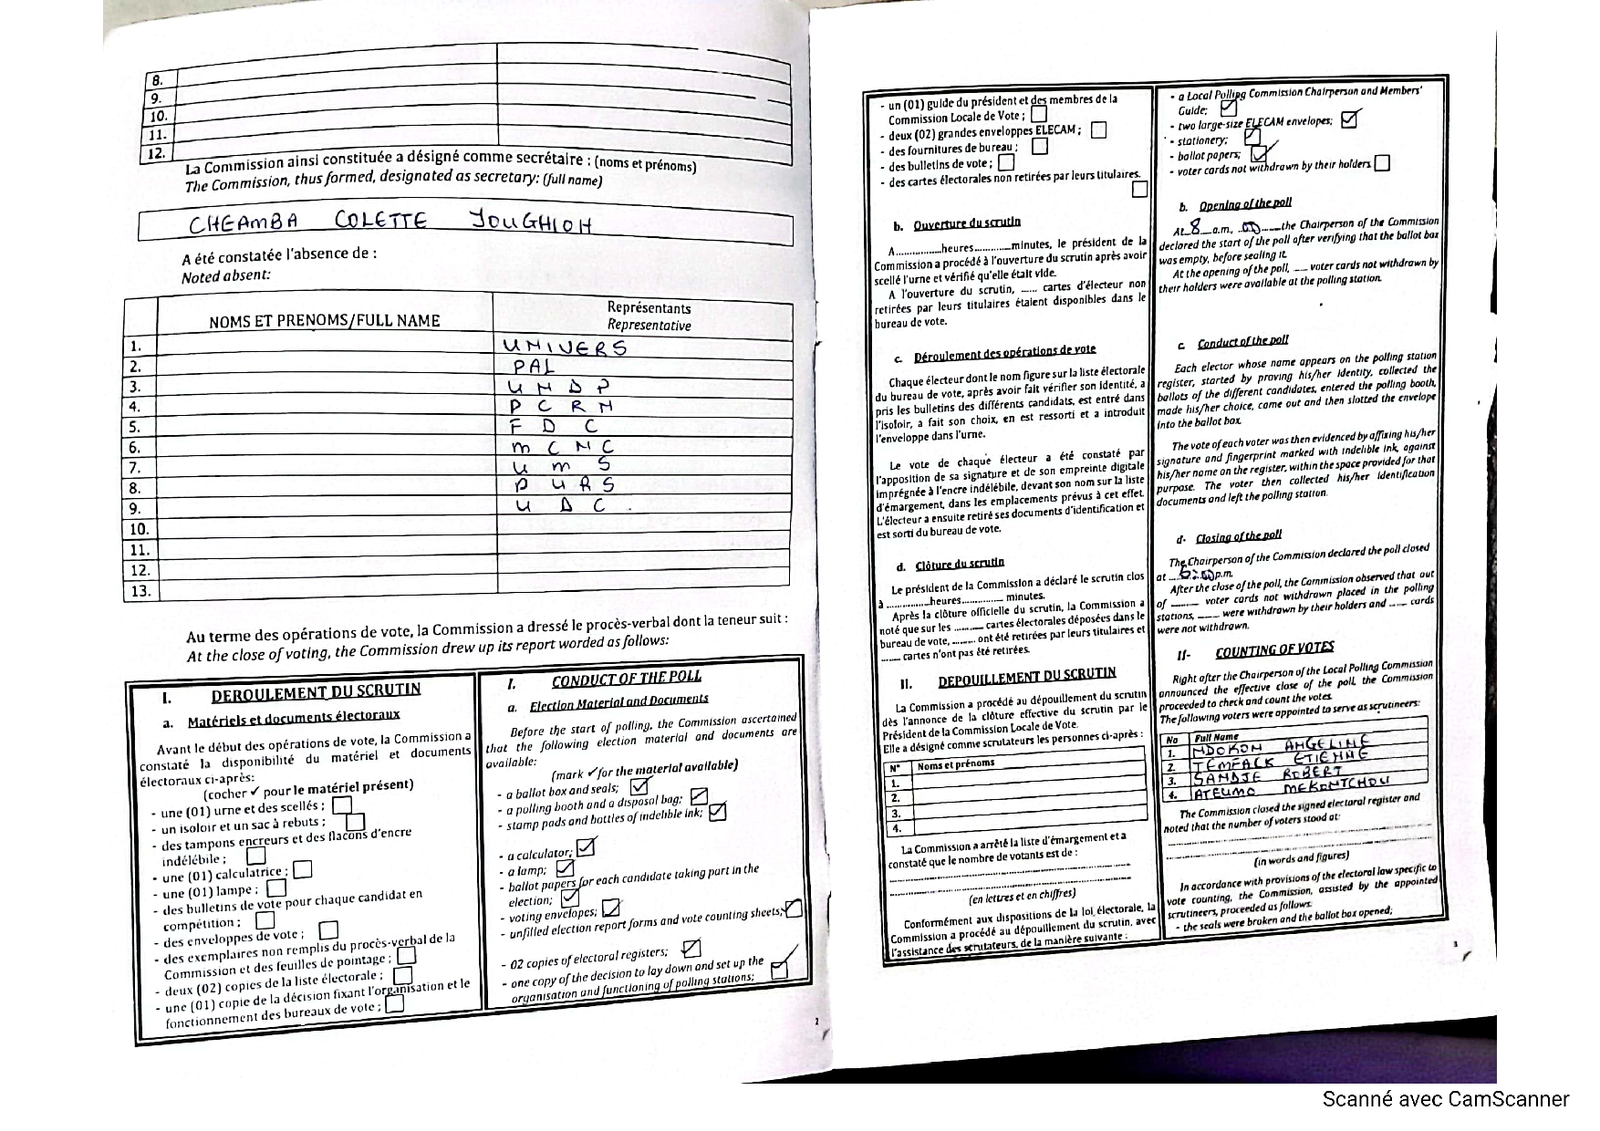 8.
9.
10.
11.
12.
La Commission ainsi constituée a désigné comme secrétaire : (noms et prénoms)
The Commission, thus formed, designated as secretary: (full name)
CHEAMBA COLETTE
A été constatée l'absence de :
Noted absent:
NOMS ET PRENOMS/FULL NAME
Représentants
Representative
1. UNIVERS
2. PAL
3. UNDP
4. PCRN
5. FDC
6. MCNC
7. UMS
8. PURS
9. UDC.
10.
11.
12.
13.
Au terme des opérations de vote, la Commission a dressé le procès-verbal dont la teneur suit :
At the close of voting, the Commission drew up its report worded as follows:
I. DEROULEMENT DU SCRUTIN
a. Matériels et documents électoraux
Avant le début des opérations de vote, la Commission a
constaté la disponibilité du matériel et documents
électoraux ci-après:
(cocher ✓ pour le matériel présent)
- une (01) urne et des scellés ;
- un isoloir et un sac à rebuts ;
- des tampons encreurs et des flacons d'encre
indélébile ;
- une (01) calculatrice ;
- une (01) lampe ;
- des bulletins de vote pour chaque candidat en
compétition ;
- des enveloppes de vote ;
- des exemplaires non remplis du procès-verbal de la
Commission et des feuilles de pointage ;
- deux (02) copies de la liste électorale ;
- une (01) copie de la décision fixant l'organisation et le
fonctionnement des bureaux de vote ;
I. CONDUCT OF THE POLL
a. Election Material and Documents
Before the start of polling, the Commission ascertained
that the following election material and documents are
available:
(mark ✓ for the material available)
- a ballot box and seals;
- a polling booth and a disposal bag;
- stamp pads and bottles of indelible ink;
- a calculator;
- a lamp;
- ballot papers for each candidate taking part in the
election;
- voting envelopes;
- unfilled election report forms and vote counting sheets;
- 02 copies of electoral registers;
- one copy of the decision to lay down and set up the
organisation and functioning of polling stations;
2
- un (01) guide du président et des membres de la
Commission Locale de Vote ;
- deux (02) grandes enveloppes ELECAM ;
- des fournitures de bureau ;
- des bulletins de vote ;
- des cartes électorales non retirées par leurs titulaires.
b. Ouverture du scrutin
A.............heures...........minutes, le président de la
Commission a procédé à l'ouverture du scrutin après avoir
scellé l'urne et vérifié qu'elle était vide.
A l'ouverture du scrutin, ...... cartes d'électeur non
retirées par leurs titulaires étaient disponibles dans le
bureau de vote.
c. Déroulement des opérations de vote
Chaque électeur dont le nom figure sur la liste électorale
du bureau de vote, après avoir fait vérifier son identité, a
pris les bulletins des différents candidats, est entré dans
l'isoloir, a fait son choix, en est ressorti et a introduit
l'enveloppe dans l'urne.
Le vote de chaque électeur a été constaté par
l'apposition de sa signature et de son empreinte digitale
imprégnée à l'encre indélébile, devant son nom sur la liste
d'émargement, dans les emplacements prévus à cet effet.
L'électeur a ensuite retiré ses documents d'identification et
est sorti du bureau de vote.
d. Clôture du scrutin
Le président de la Commission a déclaré le scrutin clos
à ..............heures............. minutes.
Après la clôture officielle du scrutin, la Commission a
noté que sur les .......... cartes électorales déposées dans le
bureau de vote, ........ ont été retirées par leurs titulaires et
...... cartes n'ont pas été retirées.
II. DEPOUILLEMENT DU SCRUTIN
La Commission a procédé au dépouillement du scrutin
dès l'annonce de la clôture effective du scrutin par le
Président de la Commission Locale de Vote.
Elle a désigné comme scrutateurs les personnes ci-après :
N° Noms et prénoms
1.
2.
3.
4.
La Commission a arrêté la liste d'émargement et a
constaté que le nombre de votants est de :
(en lettres et en chiffres)
Conformément aux dispositions de la loi électorale, la
Commission a procédé au dépouillement du scrutin, avec
l'assistance des scrutateurs, de la manière suivante :
- a Local Polling Commission Chairperson and Members'
Guide;
- two large-size ELECAM envelopes;
- stationery;
- ballot papers;
- voter cards not withdrawn by their holders
b. Opening of the poll
At 8 a.m. 00 the Chairperson of the Commission
declared the start of the poll after verifying that the ballot box
was empty, before sealing it.
At the opening of the poll, ..... voter cards not withdrawn by
their holders were available at the polling station.
c. Conduct of the poll
Each elector whose name appears on the polling station
register, started by proving his/her identity, collected the
ballots of the different candidates, entered the polling booth,
made his/her choice, came out and then slotted the envelope
into the ballot box.
The vote of each voter was then evidenced by affixing his/her
signature and fingerprint marked with indelible ink, against
his/her name on the register, within the space provided for that
purpose. The voter then collected his/her identification
documents and left the polling station.
d- Closing of the poll
The Chairperson of the Commission declared the poll closed
at 6:00 p.m.
After the close of the poll, the Commission observed that out
of ........ voter cards not withdrawn placed in the polling
stations, ....... were withdrawn by their holders and ...... cards
were not withdrawn.
II- COUNTING OF VOTES
Right after the Chairperson of the Local Polling Commission
announced the effective close of the poll, the Commission
proceeded to check and count the votes.
The following voters were appointed to serve as scrutineers:
No Full Name
1. NDOKON ANGELINE
2. TEMFACK ETIENNE
3. SANDJE ROBERT
4. ATEUMO MEKONTCHOU
The Commission closed the signed electoral register and
noted that the number of voters stood at:
(in words and figures)
In accordance with provisions of the electoral law specific to
vote counting, the Commission, assisted by the appointed
scrutineers, proceeded as follows:
- the seals were broken and the ballot box opened;
3
Scanné avec CamScanner